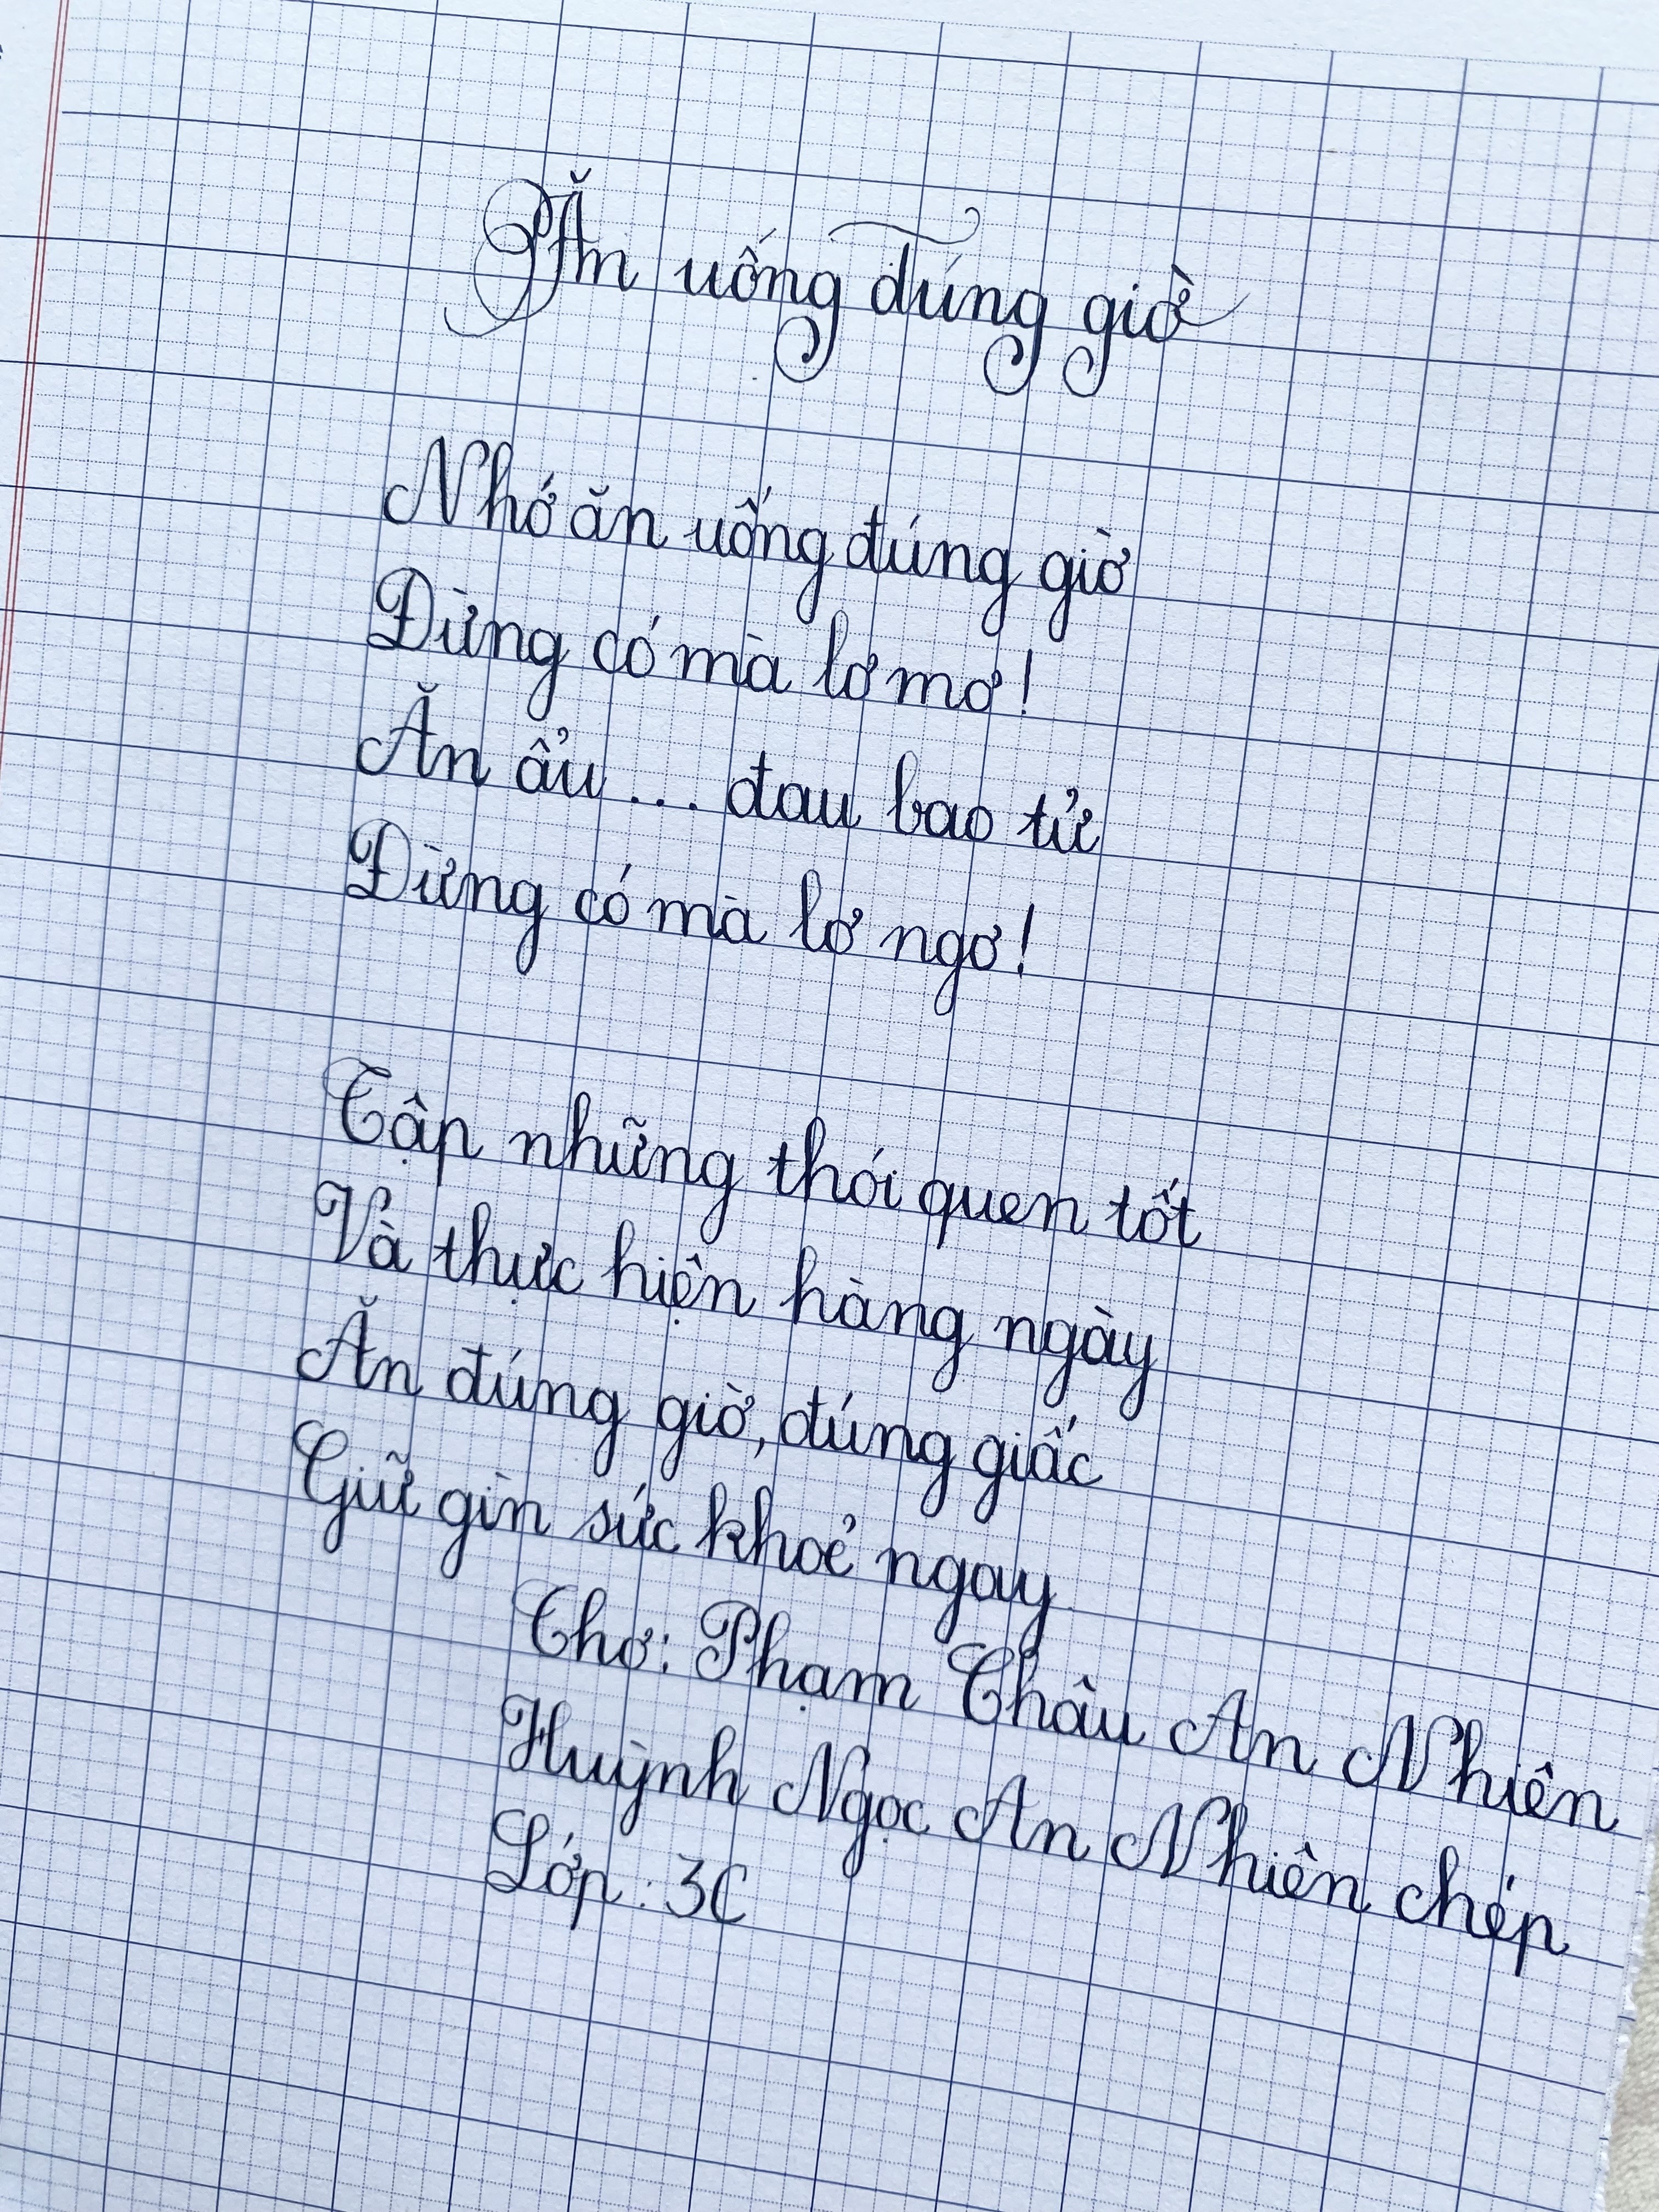 Ăn uống đúng giờ
Nhớ ăn uống đúng giờ
Đừng có mà lơ mơ!
Ăn ẩu ... đau bao tử
Đừng có mà lơ ngơ!
Tập những thói quen tốt
Và thực hiện hàng ngày
Ăn đúng giờ, đúng giấc
Giữ gìn sức khoẻ ngay
Thơ: Phạm Châu An Nhiên
Huỳnh Ngọc An Nhiên chép
Lớp: 3C